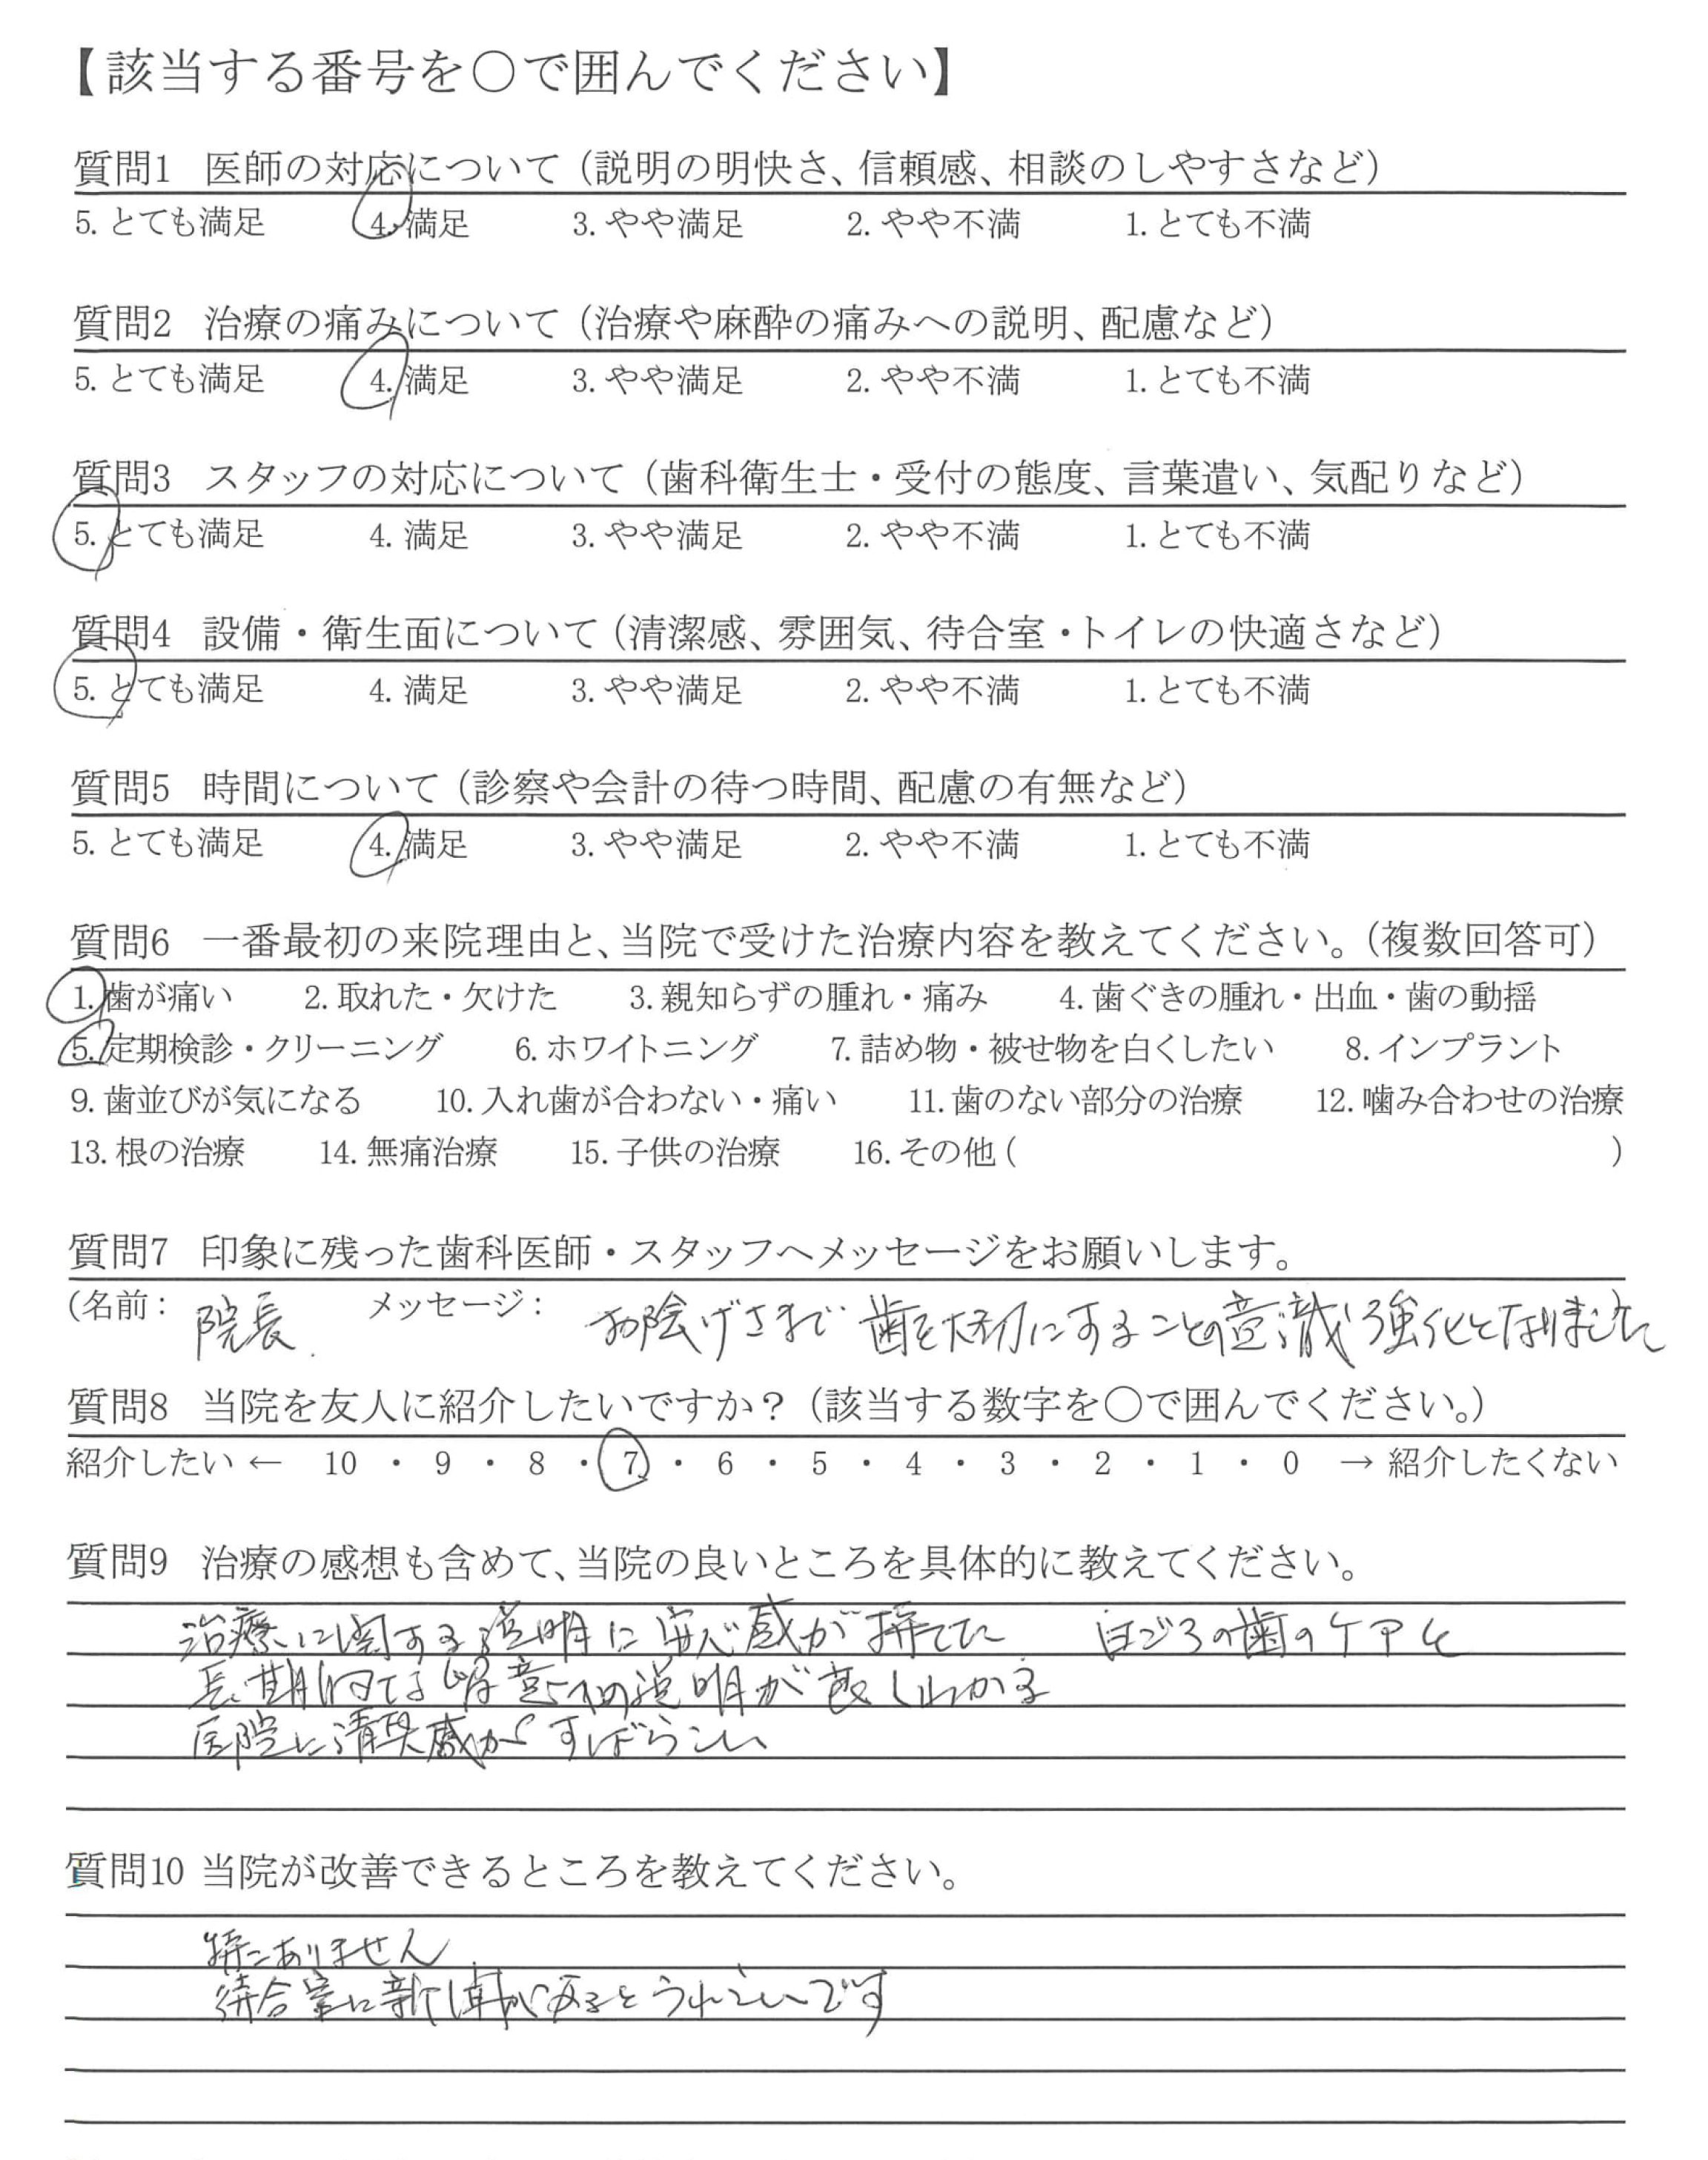 【該当する番号を〇で囲んでください】
質問1 医師の対応について（説明の明快さ、信頼感、相談のしやすさなど）
5. とても満足 4. 満足 3. やや満足 2. やや不満 1. とても不満
質問2 治療の痛みについて（治療や麻酔の痛みへの説明、配慮など）
5. とても満足 4. 満足 3. やや満足 2. やや不満 1. とても不満
質問3 スタッフの対応について（歯科衛生士・受付の態度、言葉遣い、気配りなど）
5. とても満足 4. 満足 3. やや満足 2. やや不満 1. とても不満
質問4 設備・衛生面について（清潔感、雰囲気、待合室・トイレの快適さなど）
5. とても満足 4. 満足 3. やや満足 2. やや不満 1. とても不満
質問5 時間について（診察や会計の待つ時間、配慮の有無など）
5. とても満足 4. 満足 3. やや満足 2. やや不満 1. とても不満
質問6 一番最初の来院理由と、当院で受けた治療内容を教えてください。（複数回答可）
1. 歯が痛い 2. 取れた・欠けた 3. 親知らずの腫れ・痛み 4. 歯ぐきの腫れ・出血・歯の動揺
5. 定期検診・クリーニング 6. ホワイトニング 7. 詰め物・被せ物を白くしたい 8. インプラント
9. 歯並びが気になる 10. 入れ歯が合わない・痛い 11. 歯のない部分の治療 12. 噛み合わせの治療
13. 根の治療 14. 無痛治療 15. 子供の治療 16. その他（ ）
質問7 印象に残った歯科医師・スタッフへメッセージをお願いします。
（名前： 院長 メッセージ： お陰げさまで 歯を大切にすることの意識強化となりました
質問8 当院を友人に紹介したいですか？（該当する数字を〇で囲んでください。）
紹介したい ← 10 ・ 9 ・ 8 ・ 7 ・ 6 ・ 5 ・ 4 ・ 3 ・ 2 ・ 1 ・ 0 → 紹介したくない
質問9 治療の感想も含めて、当院の良いところを具体的に教えてください。
治療に関する説明に安心感が持てた 日ごろの歯のケアと
長期 留意 の説明が わかる
医院に清潔感が すばらしい
質問10 当院が改善できるところを教えてください。
特にありません
待合室に新 があるとうれしいです